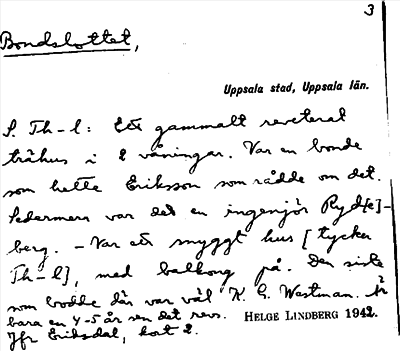 3
Bondslottet,
Uppsala stad, Uppsala län.
S. Th-l: Ett gammalt reveterat
trähus i 2 våningar. Var en bonde
som hette Eriksson som rådde om det.
Sedermera var det en ingenjör Ryd[e]-
berg. - Var ett snyggt hus [tycker
Th-l], med balkong på. Den siste
som bodde där var väl K. G. Westman. Är
bara en 4-5 år sen det revs. HELGE LINDBERG 1942.
Jfr Eriksdal, kort 2.